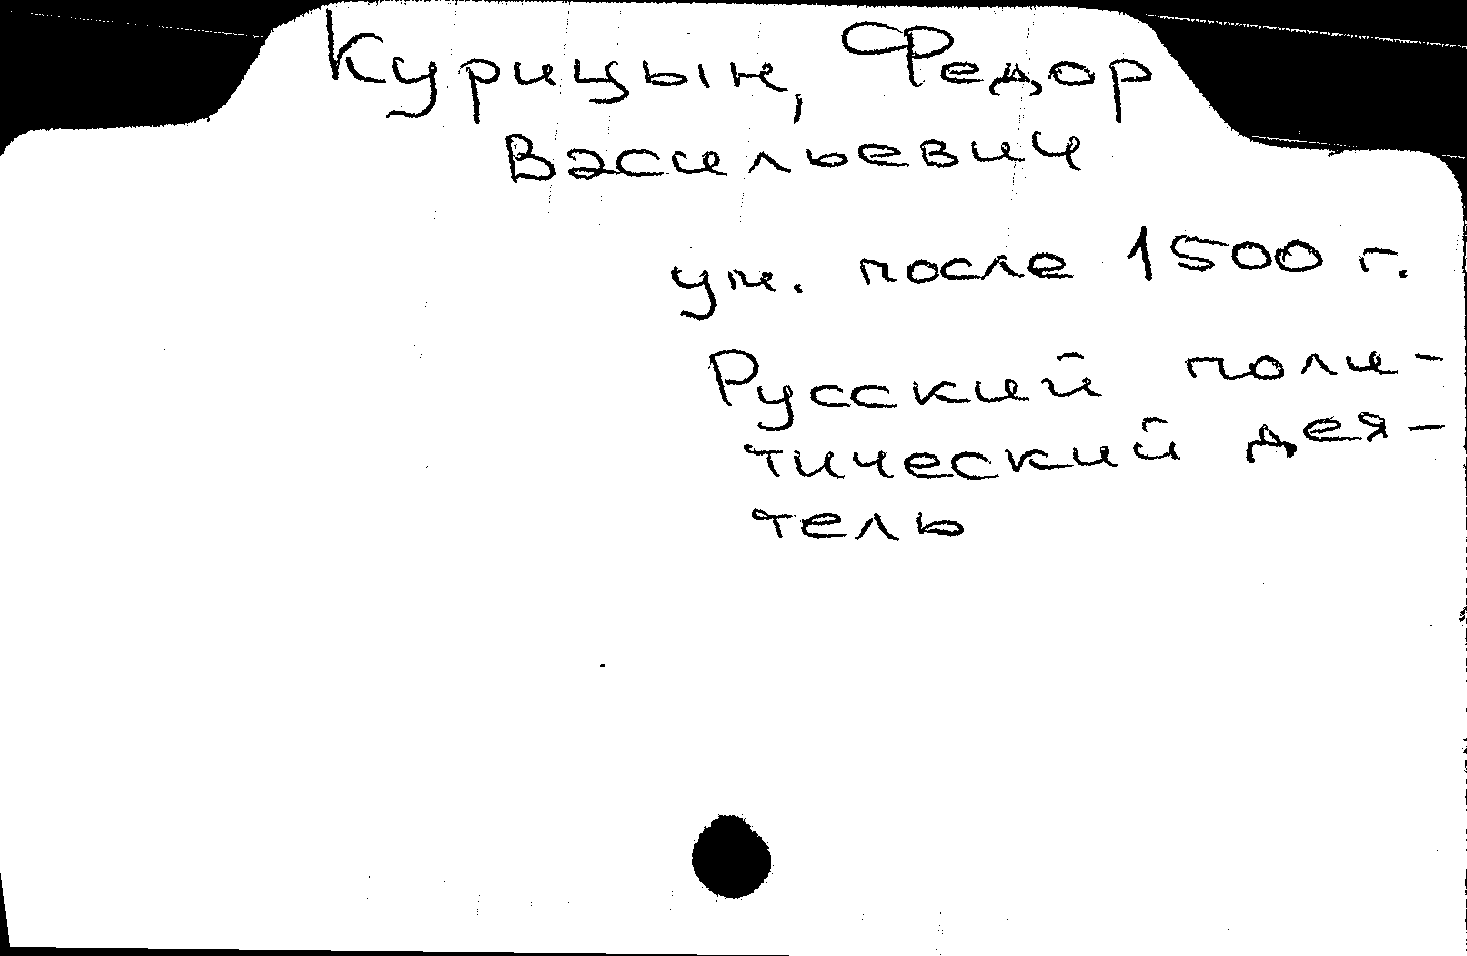 Курицын, Федор
Васильевич
ум. после 1500 г.
Русский поли-
тический дея-
тель